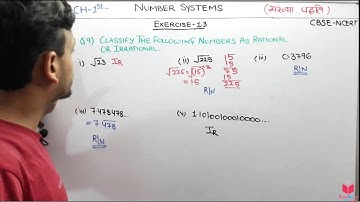 CH-1st
NUMBER SYSTEMS
(संख्या पद्धति)
EXERCISE-1.3
CBSE-NCERT
Q9) CLASSIFY THE FOLLOWING NUMBERS AS RATIONAL
OR IRRATIONAL.
i) √23 IR
(ii) √225
15
15
75
15
225
√225 = √(15)²
= 15
R|N
(iii) 0.3796
R|N
(iv) 7.478478...
= 7.478
R|N
(v) 1.10100100010000...
IR